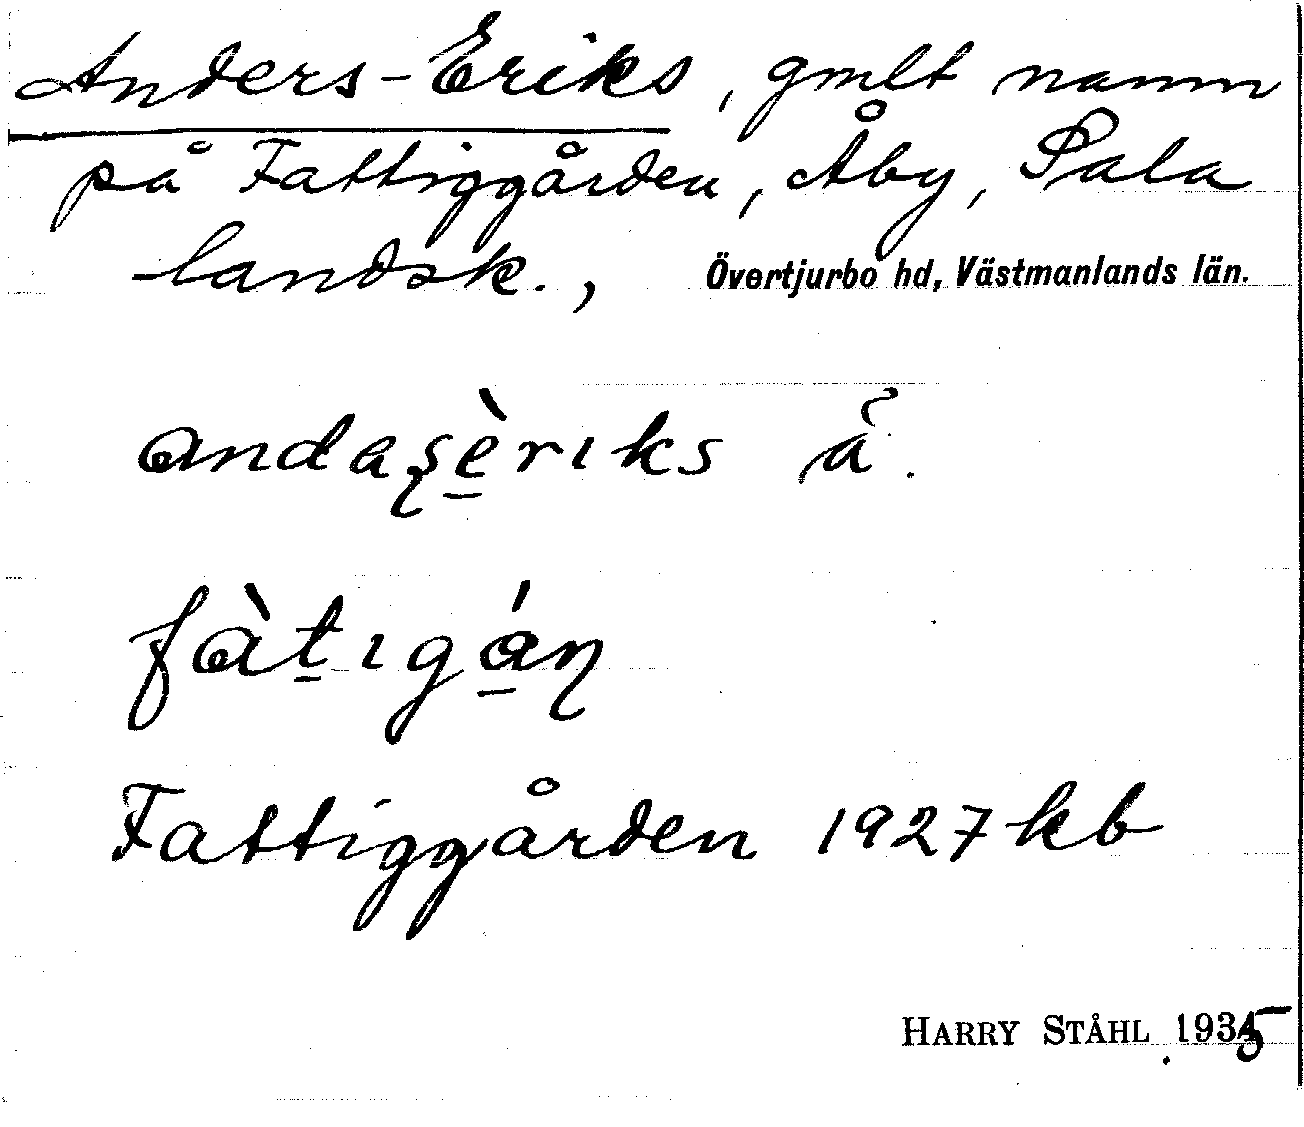 Anders-Eriks, gmlt namn
på Fattiggården, Åby, Sala
landsk., Övertjurbo hd, Västmanlands län.
andaʂèriks
fàtigáɳ
Fattiggården 1927 kb
HARRY STÅHL 1935